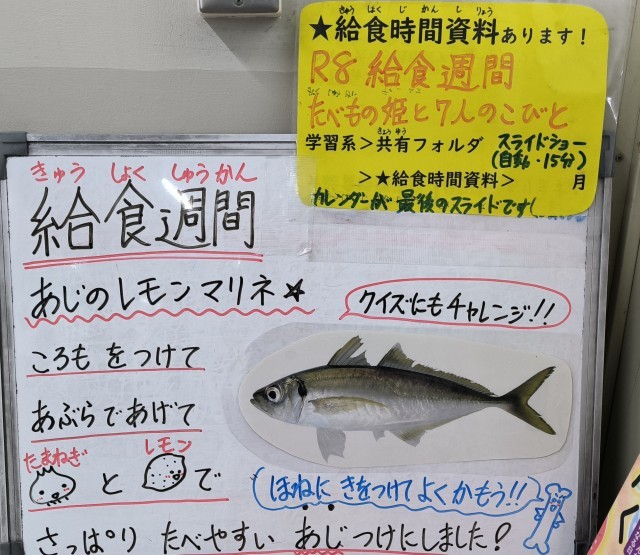 ★給食時間資料あります！
きゅう しょく じ かん し りょう
R8 給食週間
たべもの姫と7人のこびと
学習系>共有フォルダ
きょう ゆう
スライドショー
(自動・15分)
>★給食時間資料> 月
カレンダーが最後のスライドです!
きゅう しょく しゅうかん
給食週間
あじのレモンマリネ☆
クイズにもチャレンジ!!
ころもをつけて
あぶらであげて
たまねぎ レモン
と で
(ほねに きをつけてよくかもう!!
さっぱり たべやすい あじつけにしました!